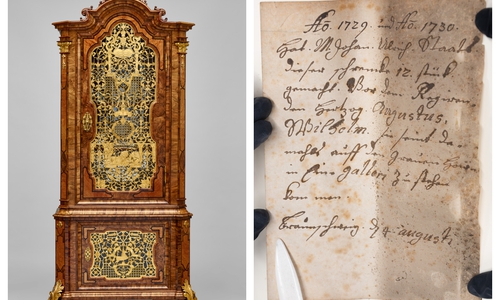 Aō. 1729. und Aō. 1730.
Hat. M. Johan. Ulrich. Stadl
dieser schrencke 12. stück
gemacht. Vor den Regiren
den Hertzog. Augustus,
Wilhelm. sie seint da-
mahls auff in
in Eine gallerj zu stehen
kommen.
Braunschweig. d. 4. augusti